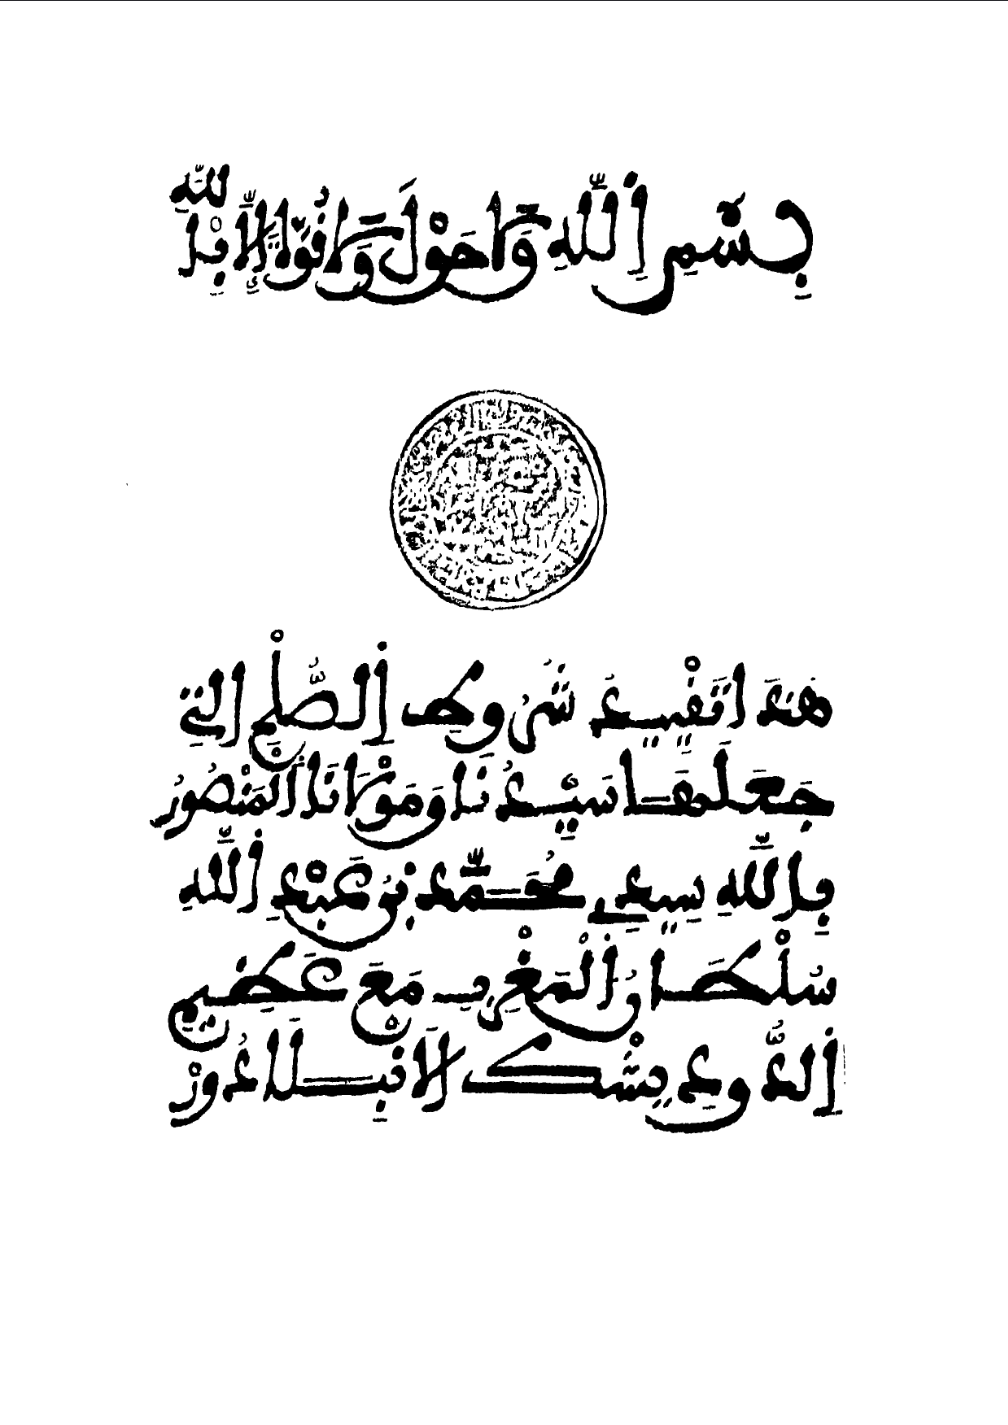 بِسْمِ اِللَّهِ وَلَا حَوْلَ وَلَا قُوَّةَ إِلَّا بِاللَّهِ
هَذَا تَقْيِيدُ شُرُوطِ اِلصُّلْحِ التِي
جَعَلَهَا سَيِّدُنَا وَمَوْلَانَا اَلْمَنْصُورُ
بِاللَّهِ سِيدِي مُحَمَّد بْنُ عَبْدِ اِللَّهِ
سُلْطَانُ اُلْمَغْرِبِ مَعَ عَظِيمِ
اِلدُّوِدِيشْك لَانْبَلَادُورْ